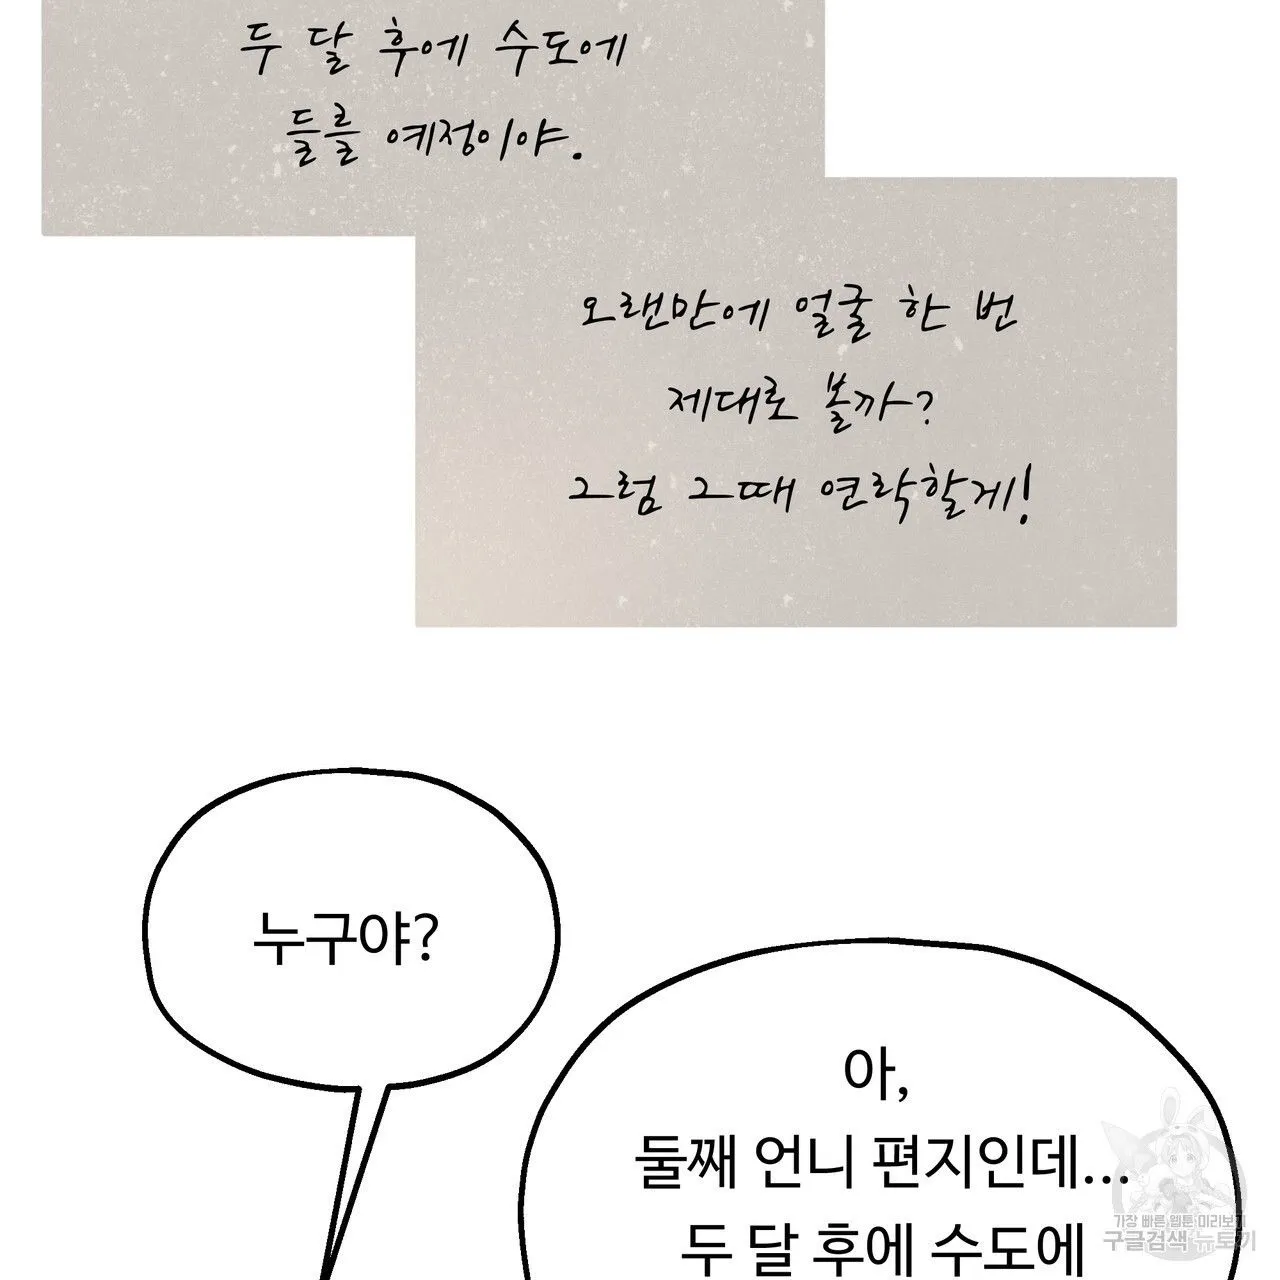 두 달 후에 수도에
들를 예정이야.
오랜만에 얼굴 한 번
제대로 볼까?
그럼 그때 연락할게!
누구야?
아,
둘째 언니 편지인데...
두 달 후에 수도에
가장 빠른 웹툰 미리보기
구글검색 뉴토끼